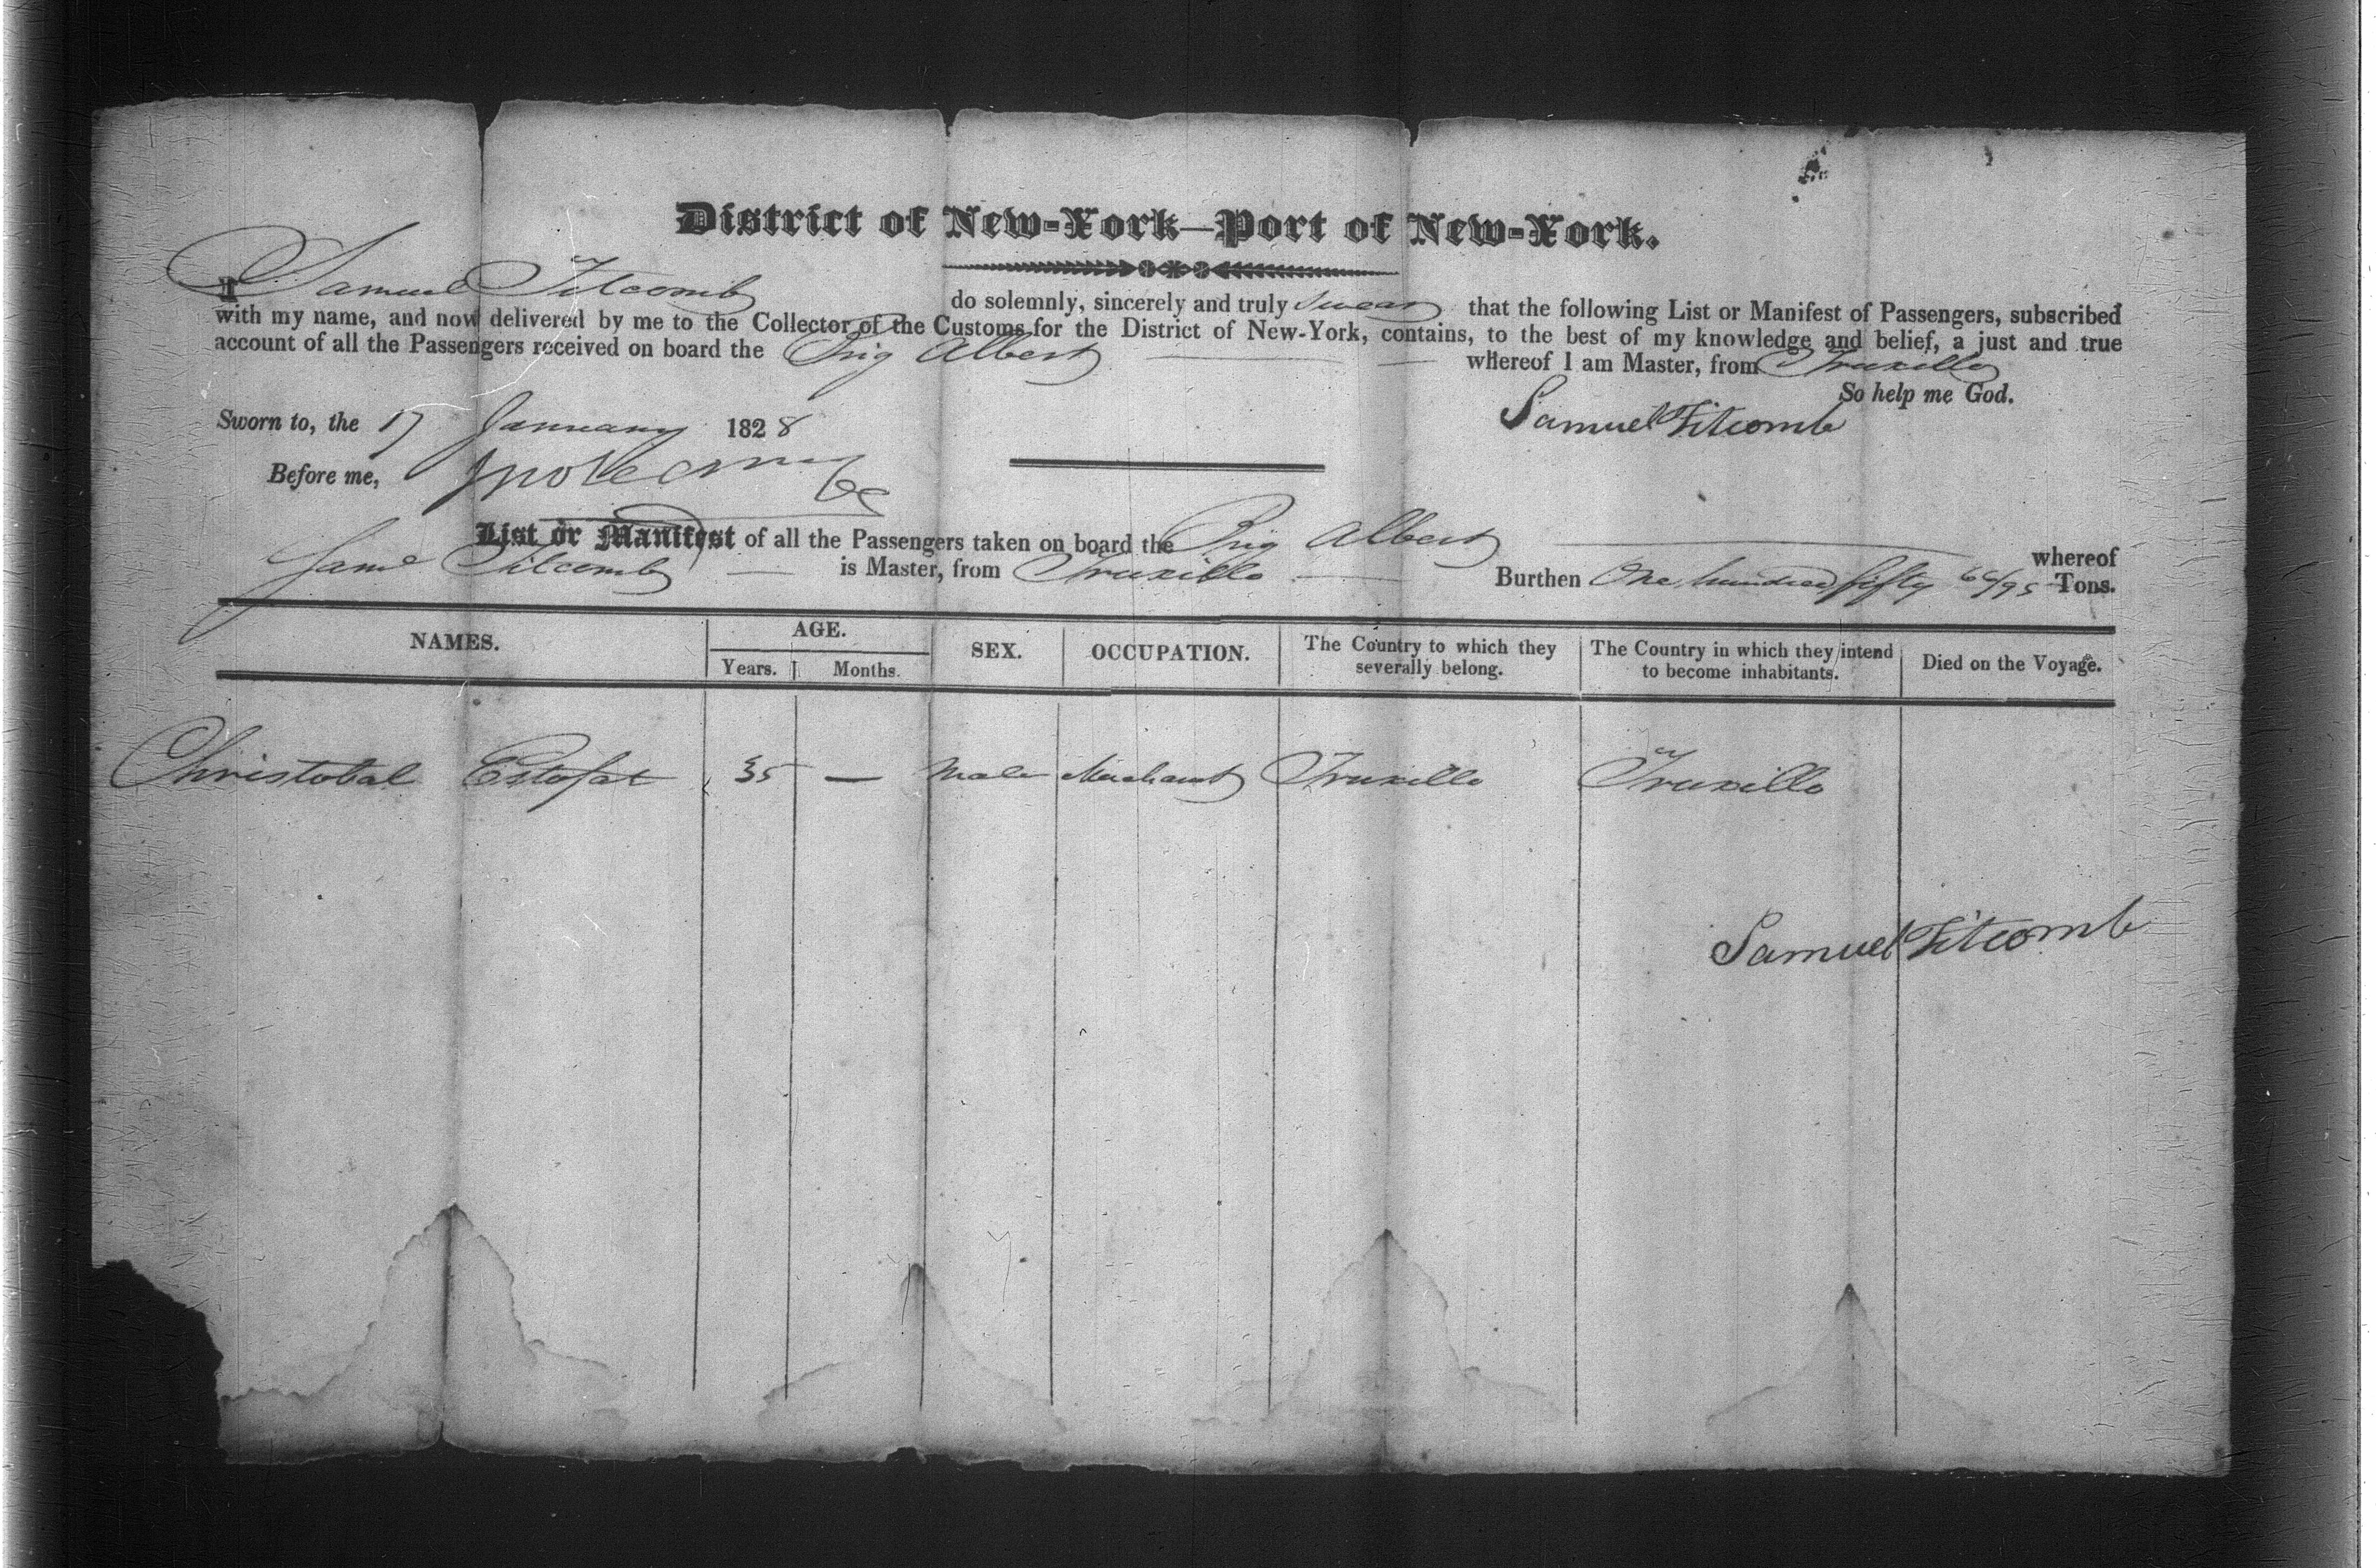 District of New-York—Port of New-York.
I Samuel Titcomb do solemnly, sincerely and truly swear that the following List or Manifest of Passengers, subscribed
with my name, and now delivered by me to the Collector of the Customs for the District of New-York, contains, to the best of my knowledge and belief, a just and true
account of all the Passengers received on board the Brig Albert whereof I am Master, from Truxillo
So help me God.
Sworn to, the 17 January 1828 Samuel Titcomb
Before me,
List or Manifest of all the Passengers taken on board the Brig Albert whereof
Saml Titcomb is Master, from Truxillo Burthen One hundred fifty 66/95 Tons.
NAMES. AGE. SEX. OCCUPATION. The Country to which they severally belong. The Country in which they intend to become inhabitants. Died on the Voyage.
Years. Months.
Christobal Estofat 35 — Male Merchant Truxillo Truxillo
Samuel Titcomb